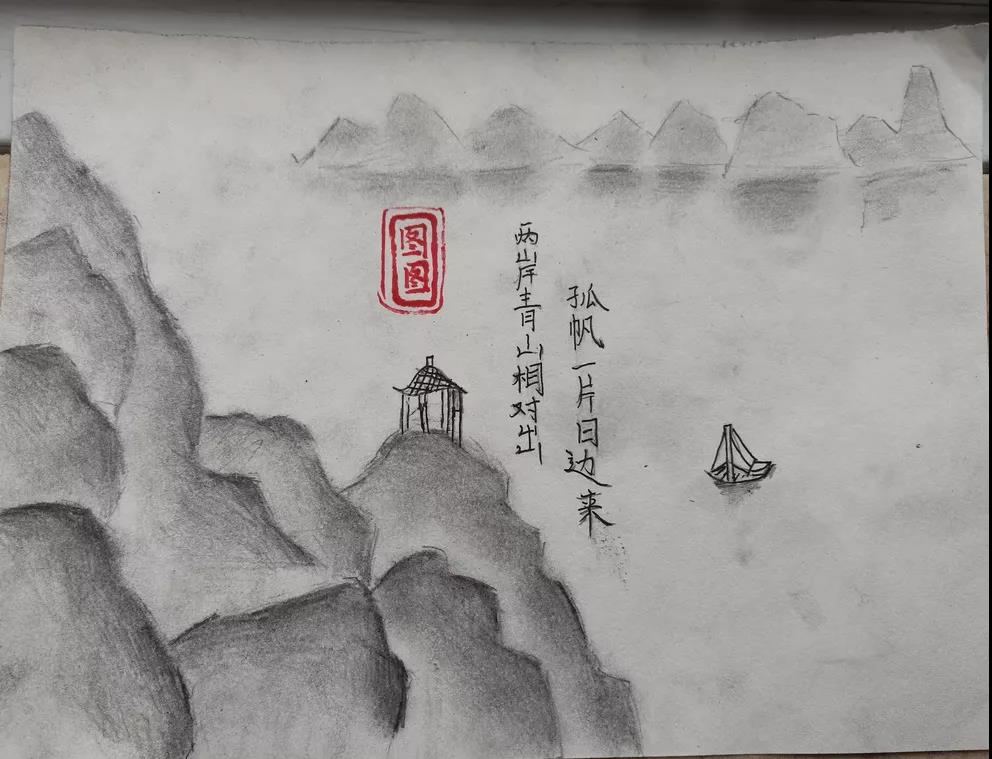 两岸青山相对出
孤帆一片日边来
图图